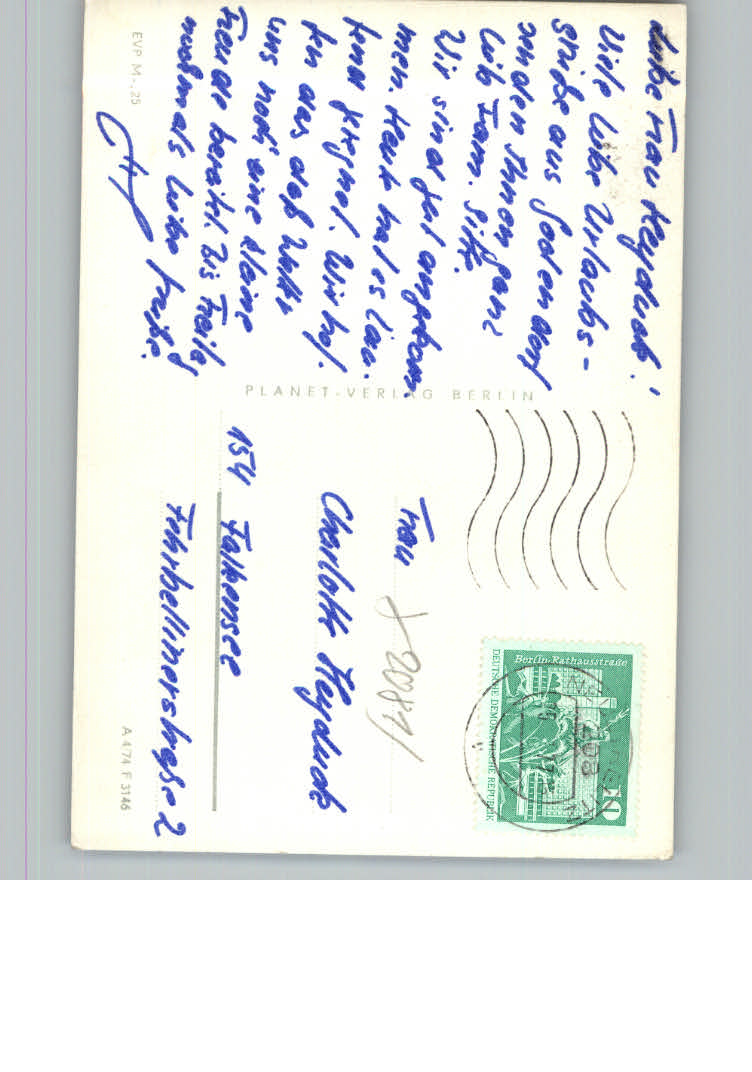 Liebe Frau Heyduck!
Viele liebe Urlaubs-
grüße aus
senden Ihnen ganz
lieb Fam.
Wir sind gut angekom.
men. Heute hat es lau.
fend geregnet. Wir hof.
fen das daß Wetter
uns noch eine kleine
Freude bereitet. Bis Freitag
nochmals liebe Grüße.
EVP M -,25
PLANET-VERLAG BERLIN
Frau
Charlotte Heyduck
154 Falkensee
Fehrbellinerstraße 2
A 4/74 F 3146
Berlin-Rathausstraße
DEUTSCHE DEMOKRATISCHE REPUBLIK
10